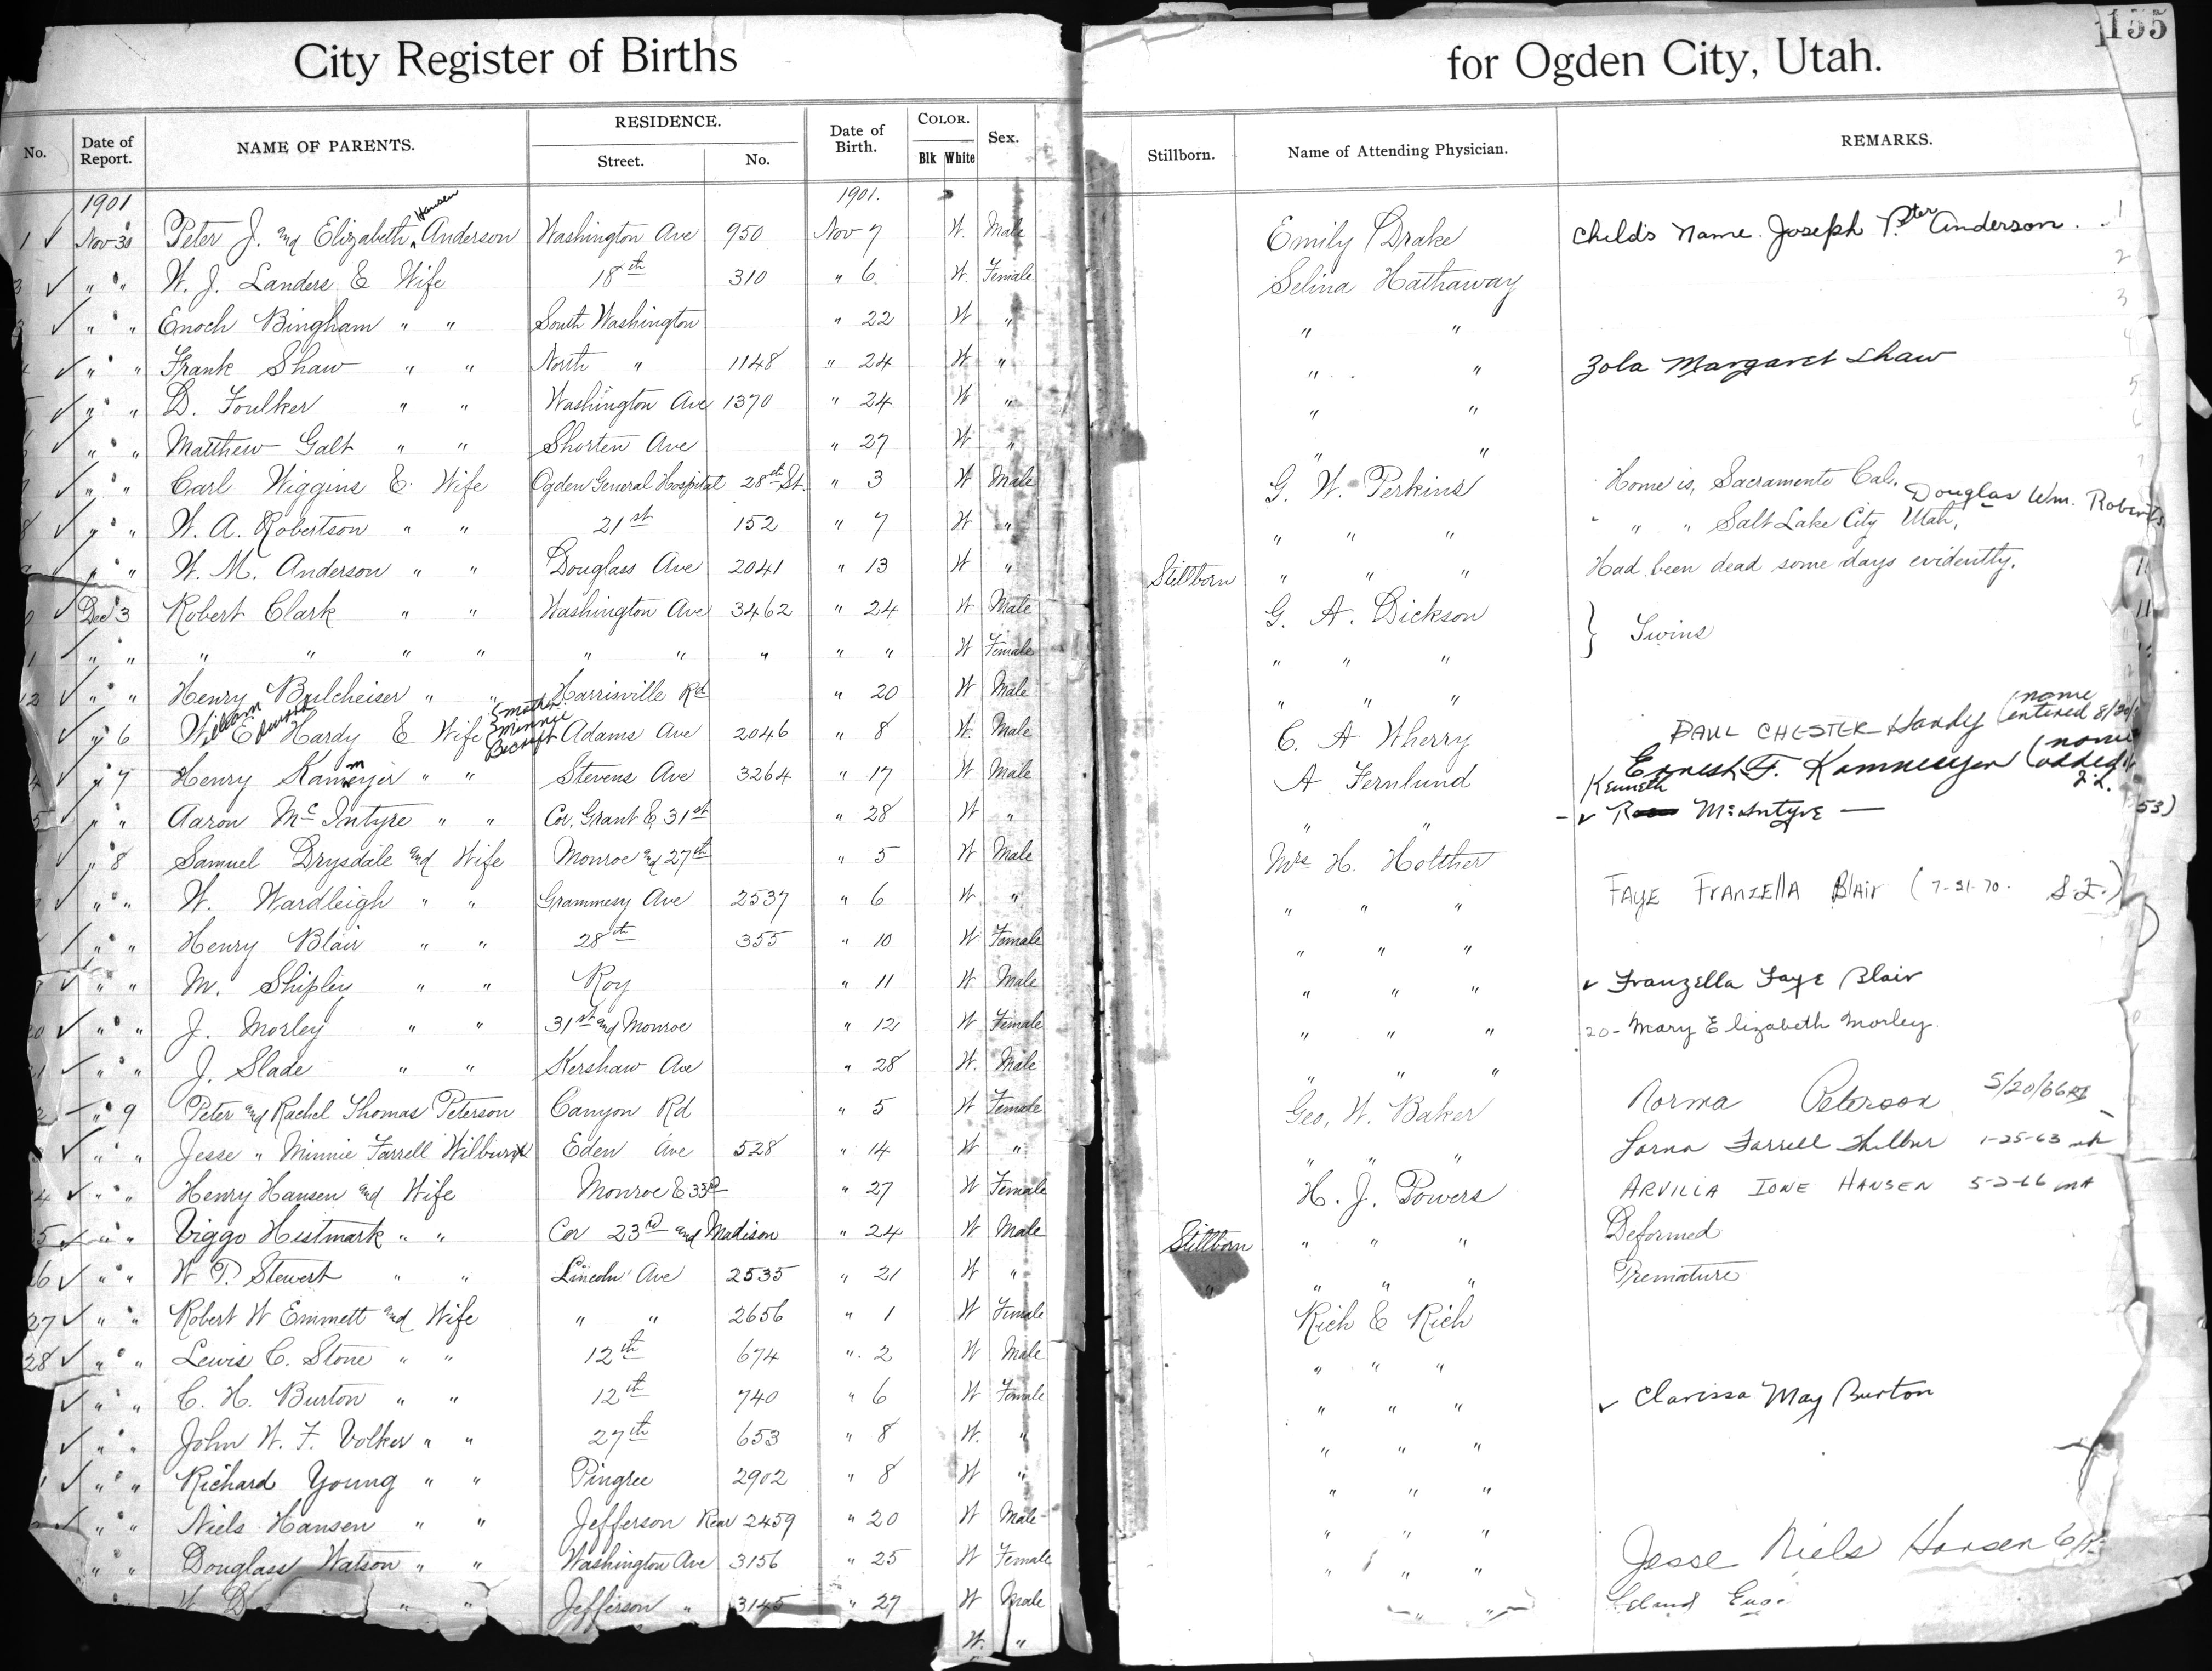 City Register of Births for Ogden City, Utah. 155
No. Date of Report. NAME OF PARENTS. RESIDENCE. Street. No. Date of Birth. COLOR. Blk White Sex. Stillborn. Name of Attending Physician. REMARKS.
1901 1901.
1 ✓ Nov 30 Peter J. and Elizabeth Hansen Anderson Washington Ave 950 Nov 7 W. Male Emily Drake Child's Name Joseph Peter Anderson. 1
✓ " " W. J. Landers & Wife 18th 310 " 6 W. Female Selina Hathaway 2
✓ " " Enoch Bingham " " South Washington " 22 W " " " 3
✓ " " Frank Shaw " " North " 1148 " 24 W " " " Zola Margaret Shaw 4
✓ " " D. Foulker " " Washington Ave 1370 " 24 W " " " 5
✓ " " Matthew Galt " " Shorten Ave " 27 W " " " 6
✓ " " Carl Wiggins & Wife Ogden General Hospital 28th St. " 3 W Male G. W. Perkins Home is, Sacramento Cal. 7
8 ✓ " " W. A. Robertson " " 21st 152 " 7 W " " " " " " " Salt Lake City Utah, Douglas Wm. Roberts
✓ " " W. M. Anderson " " Douglass Ave 2041 " 13 W " Stillborn " " " Had been dead some days evidently.
0 ✓ Dec 3 Robert Clark " " Washington Ave 3462 " 24 W Male G. A. Dickson } Twins
1 ✓ " " " " " " " " " " " W Female " " "
12 ✓ " " Henry Bulcheiser " " Harrisville Rd " 20 W Male " " "
✓ " 6 William Edward Hardy & Wife (mother Minnie Adams Ave 2046 " 8 W. Male C. A Wherry PAUL CHESTER Hardy (name entered 8/20/
4 ✓ " 7 Henry Kammeyer " " Stevens Ave 3264 " 17 W Male A Fernlund Ernest F. Kammeyer (name added
5 ✓ " " Aaron McIntyre " " Cor, Grant & 31st " 28 W " " " ✓ Kenneth McIntyre — 53)
✓ " 8 Samuel Drysdale and Wife Monroe and 27th " 5 W Male Mrs H. Holther
✓ " " W. Wardleigh " " Grammesy Ave 2537 " 6 W " " " " FAYE FRANZELLA Blair (7-31-70. S.L.)
✓ " " Henry Blair " " 28th 355 " 10 W Female " " "
✓ " " M. Shipley " " Roy " 11 W Male " " " ✓ Franzella Faye Blair
20 ✓ " " J. Morley " " 31st and Monroe " 12 W Female " " " 20- Mary Elizabeth Morley
✓ " " J. Slade " " Kershaw Ave " 28 W. Male " " "
2 " 9 Peter and Rachel Thomas Peterson Canyon Rd " 5 W Female Geo, W. Baker Norma Peterson 5/20/66
✓ " " Jesse " Minnie Farrell Wilbur Eden Ave 528 " 14 W " " " " Lorna Farrell Wilbur 1-25-63
4 ✓ " " Henry Hansen and Wife Monroe & 33rd " 27 W Female H. J. Powers ARVILLA IONE HANSEN 5-2-66
5 ✓ " " Viggo Hustmark " " Cor 23rd and Madison " 24 W Male Stillborn " " " Deformed
6 ✓ " " W P. Stewert " " Lincoln Ave 2535 " 21 W " " " " " Premature
27 ✓ " " Robert W Emmett and Wife " " 2656 " 1 W Female Rich & Rich
28 ✓ " " Lewis C. Stone " " 12th 674 " 2 W Male " " "
✓ " " C. H. Burton " " 12th 740 " 6 W Female " " " ✓ Clarissa May Burton
✓ " " John W. F. Volker " " 27th 653 " 8 W. " " " "
✓ " " Richard Young " " Pingree 2902 " 8 W " " " "
✓ " " Niels Hansen " " Jefferson Rear 2459 " 20 W Male " " " Jesse Niels Hansen
" " Douglass Watson " " Washington Ave 3156 " 25 W Female " " "
W. D " " Jefferson " 3145 " 27 W Male " " Leland
W. "